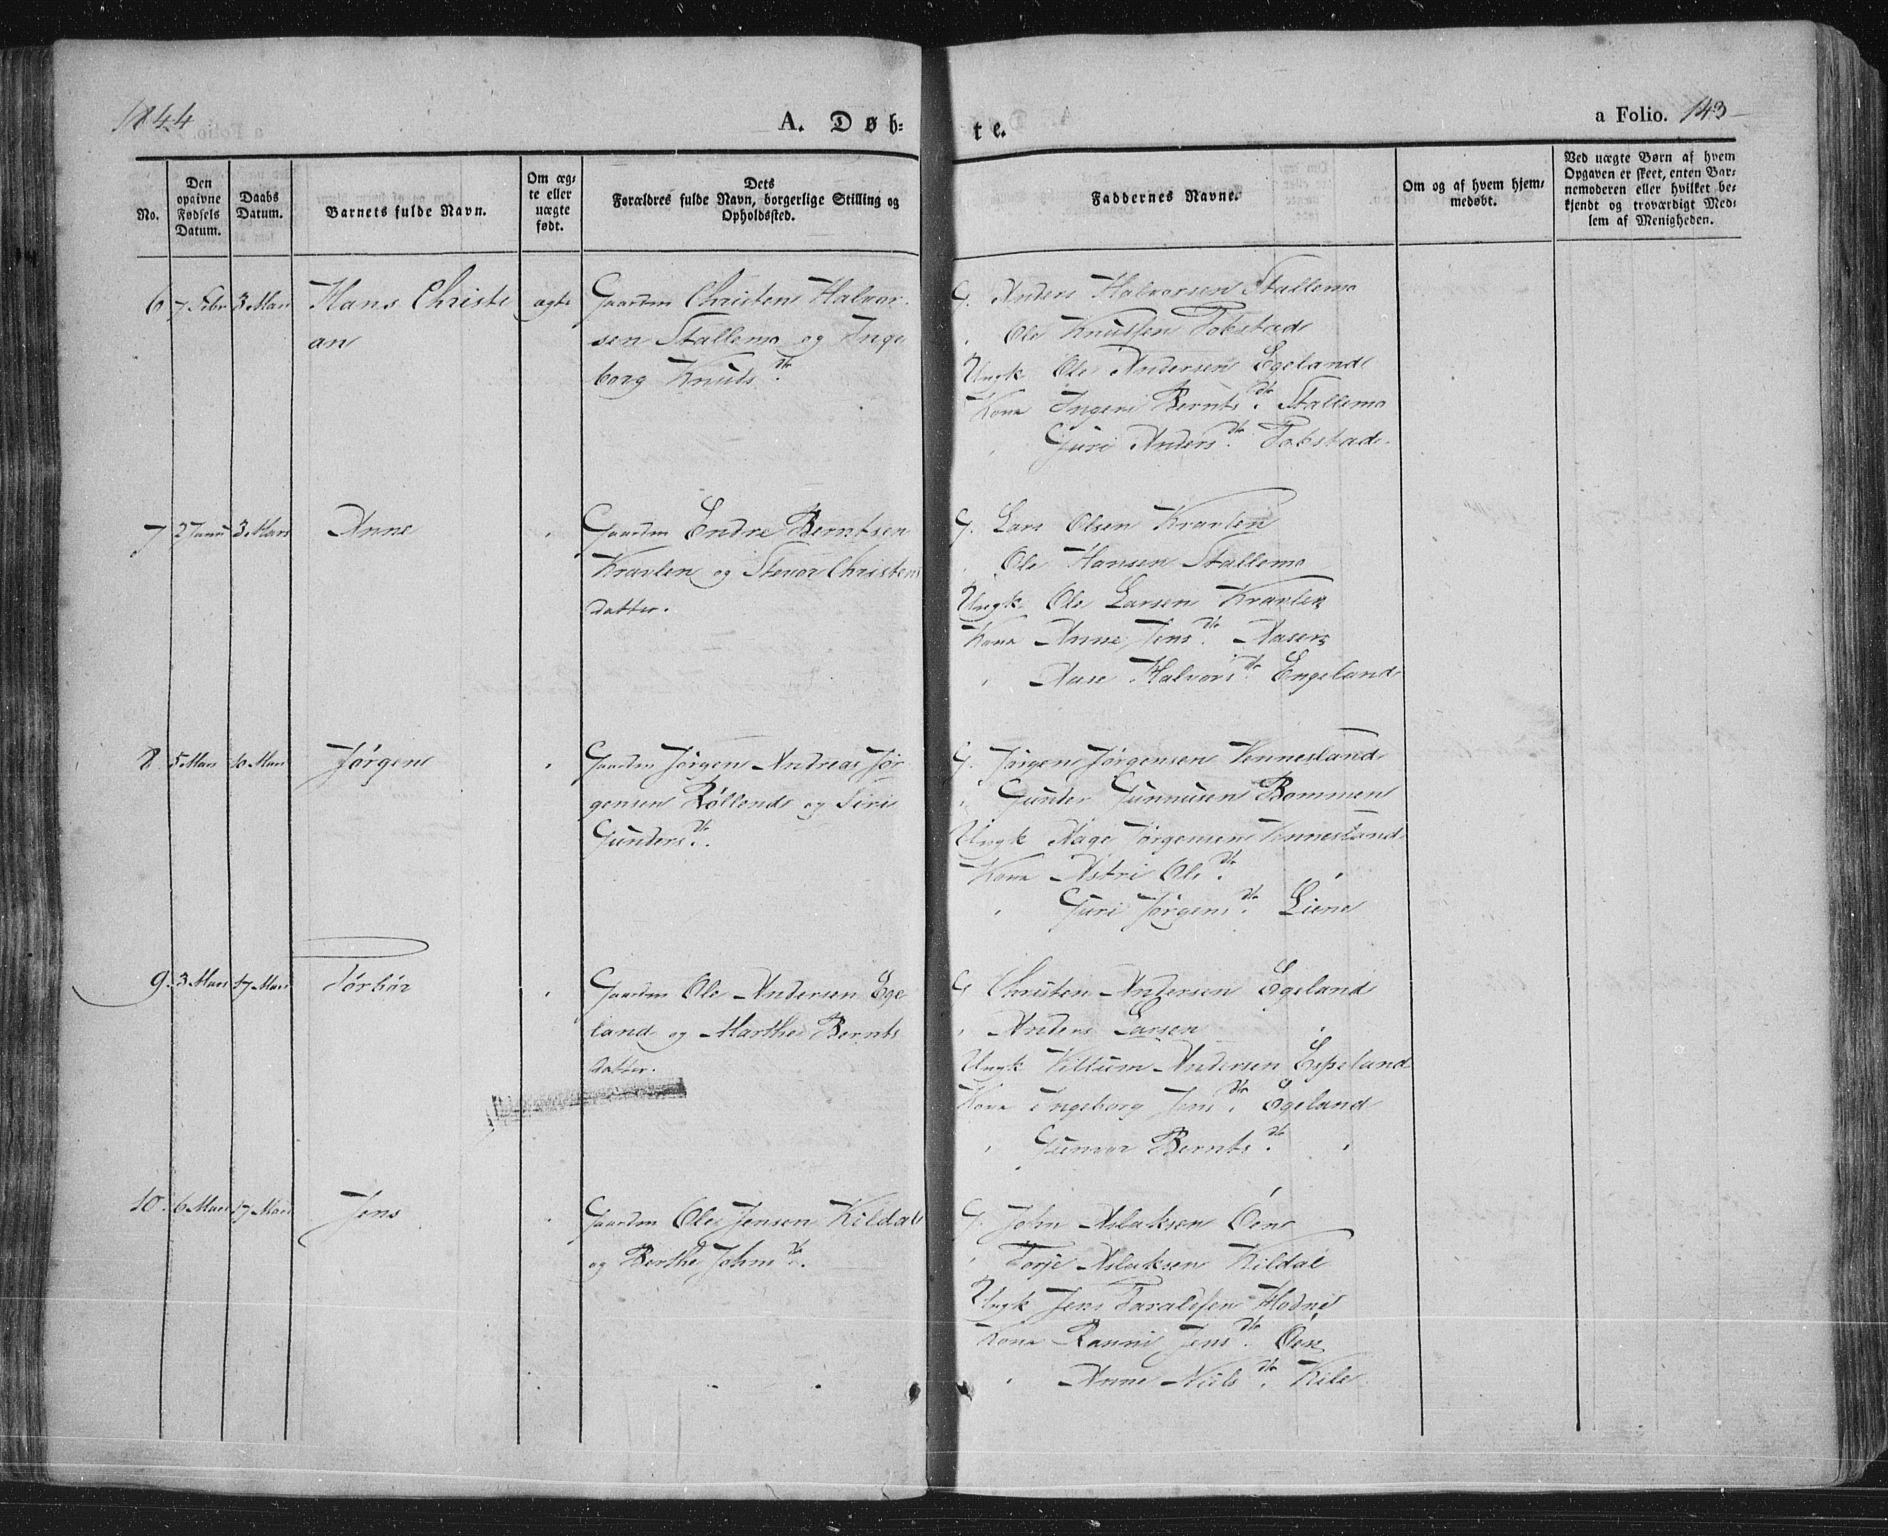 1844
A. Døb-
te.
a Folio. 143
No.
Den opgivne Fødsels Datum.
Daabs Datum.
Barnets fulde Navn.
Om ægte eller uægte født.
Dets Forældres fulde Navn, borgerlige Stilling og Opholdssted.
Faddernes Navne.
Om og af hvem hjemmedøbt.
Ved uægte Børn af hvem Opgaven er skeet, enten Barnemoderen eller hvilket bekjendt og troværdigt Medlem af Menigheden.
6 7 Febr 3 Mars Hans Christi
an
ægte
Gaardm Christen Halvor
sen Stallemo og Inge
borg Knuds dtr.
G. Anders Halvorsen Stallemo
Ole Knutsen Tobstad
Ungk Ole Andersen Egeland
Kone Ingeri Bernts dtr. Stallemo
" Guri Anders dtr. Tobstad
7 2 Janu 3 Mars Anne "
Gaardm Endre Berntsen
Kravlen og Stenor Christens
datter.
G. Lars Olsen Kravlen
" Ole Hansen Stallemo
Ungk Ole Larsen Kravlen
Kone Anne Jens dtr. Aasen
" Aase Halvors dtr Engeland
8 5 Mars 10 Mars Jørgen "
Gaardm Jørgen Andreas Jør
gensen Røllend og Siri
Gunders dtr.
G. Jørgen Jørgensen Vennesland
" Gunder Gunnusen Bommen
Ungk Aage Jørgensen Vennesland
Kone Astri Ols dtr. "
" Guri Jørgens dtr. Liene
9. 3 Mars 17 Mars Tørbør "
Gaardm Ole Andersen Ege
land og Marthe Bernts
datter.
G Christen Andersen Egeland
" Anders Larsen "
Ungk Villum Andersen Espeland
Kone Ingeborg Jens dtr. Egeland
" Gunvor Bernts dtr. "
10. 6 Mars 17 Mars Jens "
Gaardm Ole Jensen Kildal
og Berthe Johns dtr.
G. John Aslaksen Øen
" Torje Aslaksen Kildal
Ungk Jens Taraldsen Hodne
Kone Ranni Jens dtr. Øen
" Anne Niels dtr. Kile